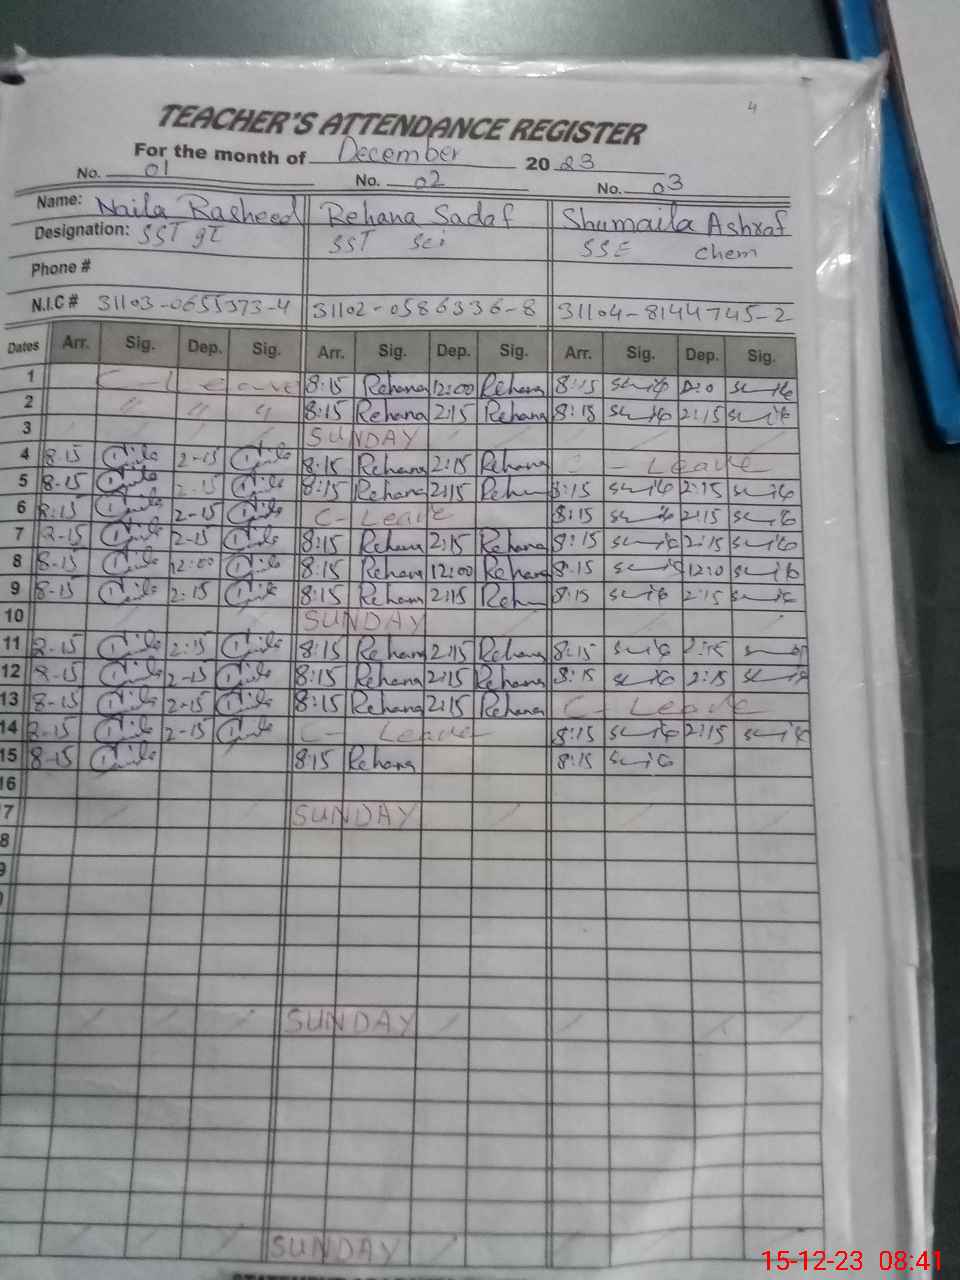 4
TEACHER'S ATTENDANCE REGISTER
For the month of December 2023
No. 01 No. 02 No. 03
Name: Naila Rasheed Rehana Sadaf Shumaila Ashraf
Designation: SST SST Sci SSE Chem
Phone #
N.I.C # 31103-0655373-4 31102-0586336-8 31104-8144745-2
Dates Arr. Sig. Dep. Sig. Arr. Sig. Dep. Sig. Arr. Sig. Dep. Sig.
1 C-Leave 8:15 Rehana 12:00 Rehana 8:15
2 〃 〃 〃 8:15 Rehana 2:15 Rehana 8:15 2:15
3 SUNDAY
4 8-15 2-15 8:15 Rehana 2:15 Rehana C-Leave
5 8-15 2-15 8:15 Rehana 2:15 8:15 2:15
6 8:15 2-15 C-Leave 8:15 2:15
7 8-15 2-15 8:15 Rehana 2:15 Rehana 8:15 2:15
8 8-15 12:00 8:15 Rehana 12:00 Rehana 8:15 12:0
9 8-15 2:15 8:15 Rehana 2:15 8:15 2:15
10 SUNDAY
11 8-15 2:15 8:15 Rehana 2:15 Rehana 8:15 2:15
12 8-15 2-15 8:15 Rehana 2:15 Rehana 8:15 2:15
13 8-15 2-15 8:15 Rehana 2:15 Rehana C-Leave
14 8-15 2-15 C-Leave 8:15 2:15
15 8-15 8:15 Rehana 8:15
16
7 SUNDAY
8
9
SUNDAY
SUNDAY
15-12-23 08:41